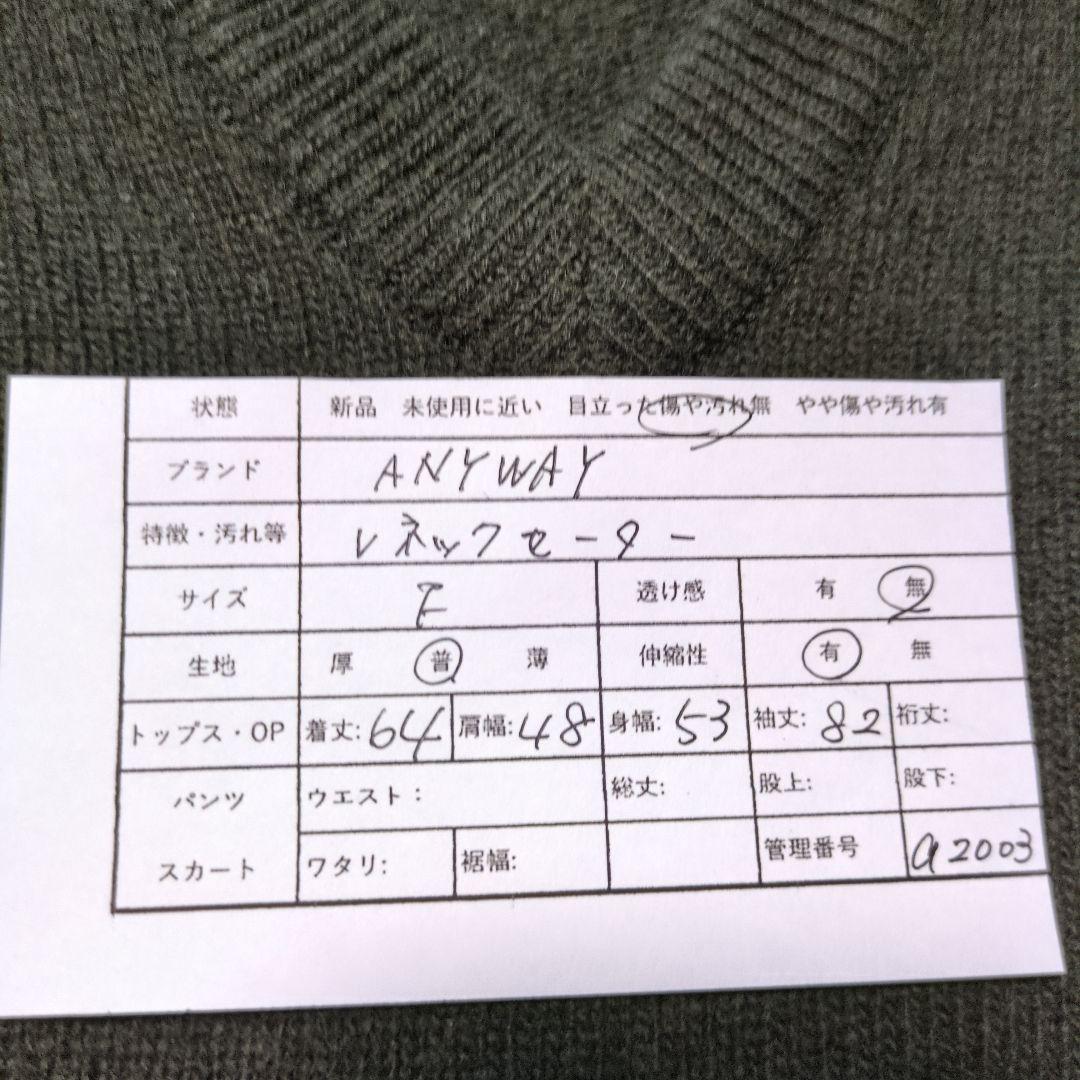 状態 新品 未使用に近い 目立った傷や汚れ無 やや傷や汚れ有
ブランド ANYWAY
特徴・汚れ等 Vネックセーター
サイズ F 透け感 有 無
生地 厚 普 薄 伸縮性 有 無
トップス・OP 着丈:64 肩幅:48 身幅:53 袖丈:82 裄丈:
パンツ ウエスト: 総丈: 股上: 股下:
スカート ワタリ: 裾幅: 管理番号 a2003